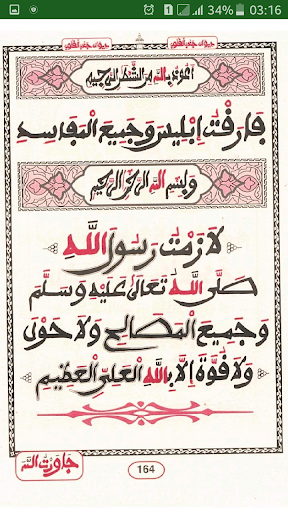 34% 03:16
أعوذ بالله من الشيطن الرجيم
فَارَقْتُ إِبْلِيسَ وَجَمِيعَ الْمَفَاسِدِ
وبسم الله الرحمن الرحيم
لَازَمْتُ رَسُولَ اللَّهِ
صَلَّى اللَّهُ تَعَالَى عَلَيْهِ وَسَلَّمَ
وَجَمِيعَ الْمَصَالِحِ وَلَا حَوْلَ
وَلَا قُوَّةَ إِلَّا بِاللَّهِ الْعَلِيِّ الْعَظِيمِ
جاورت الله
164